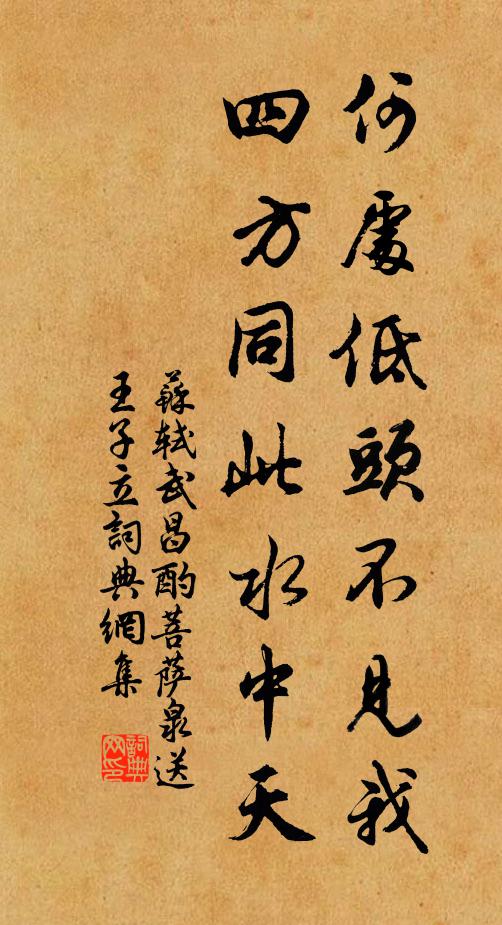 何處低頭不見我
四方同此水中天
蘇軾武昌酌菩薩泉送
王子立詞典網集
詞典
网印